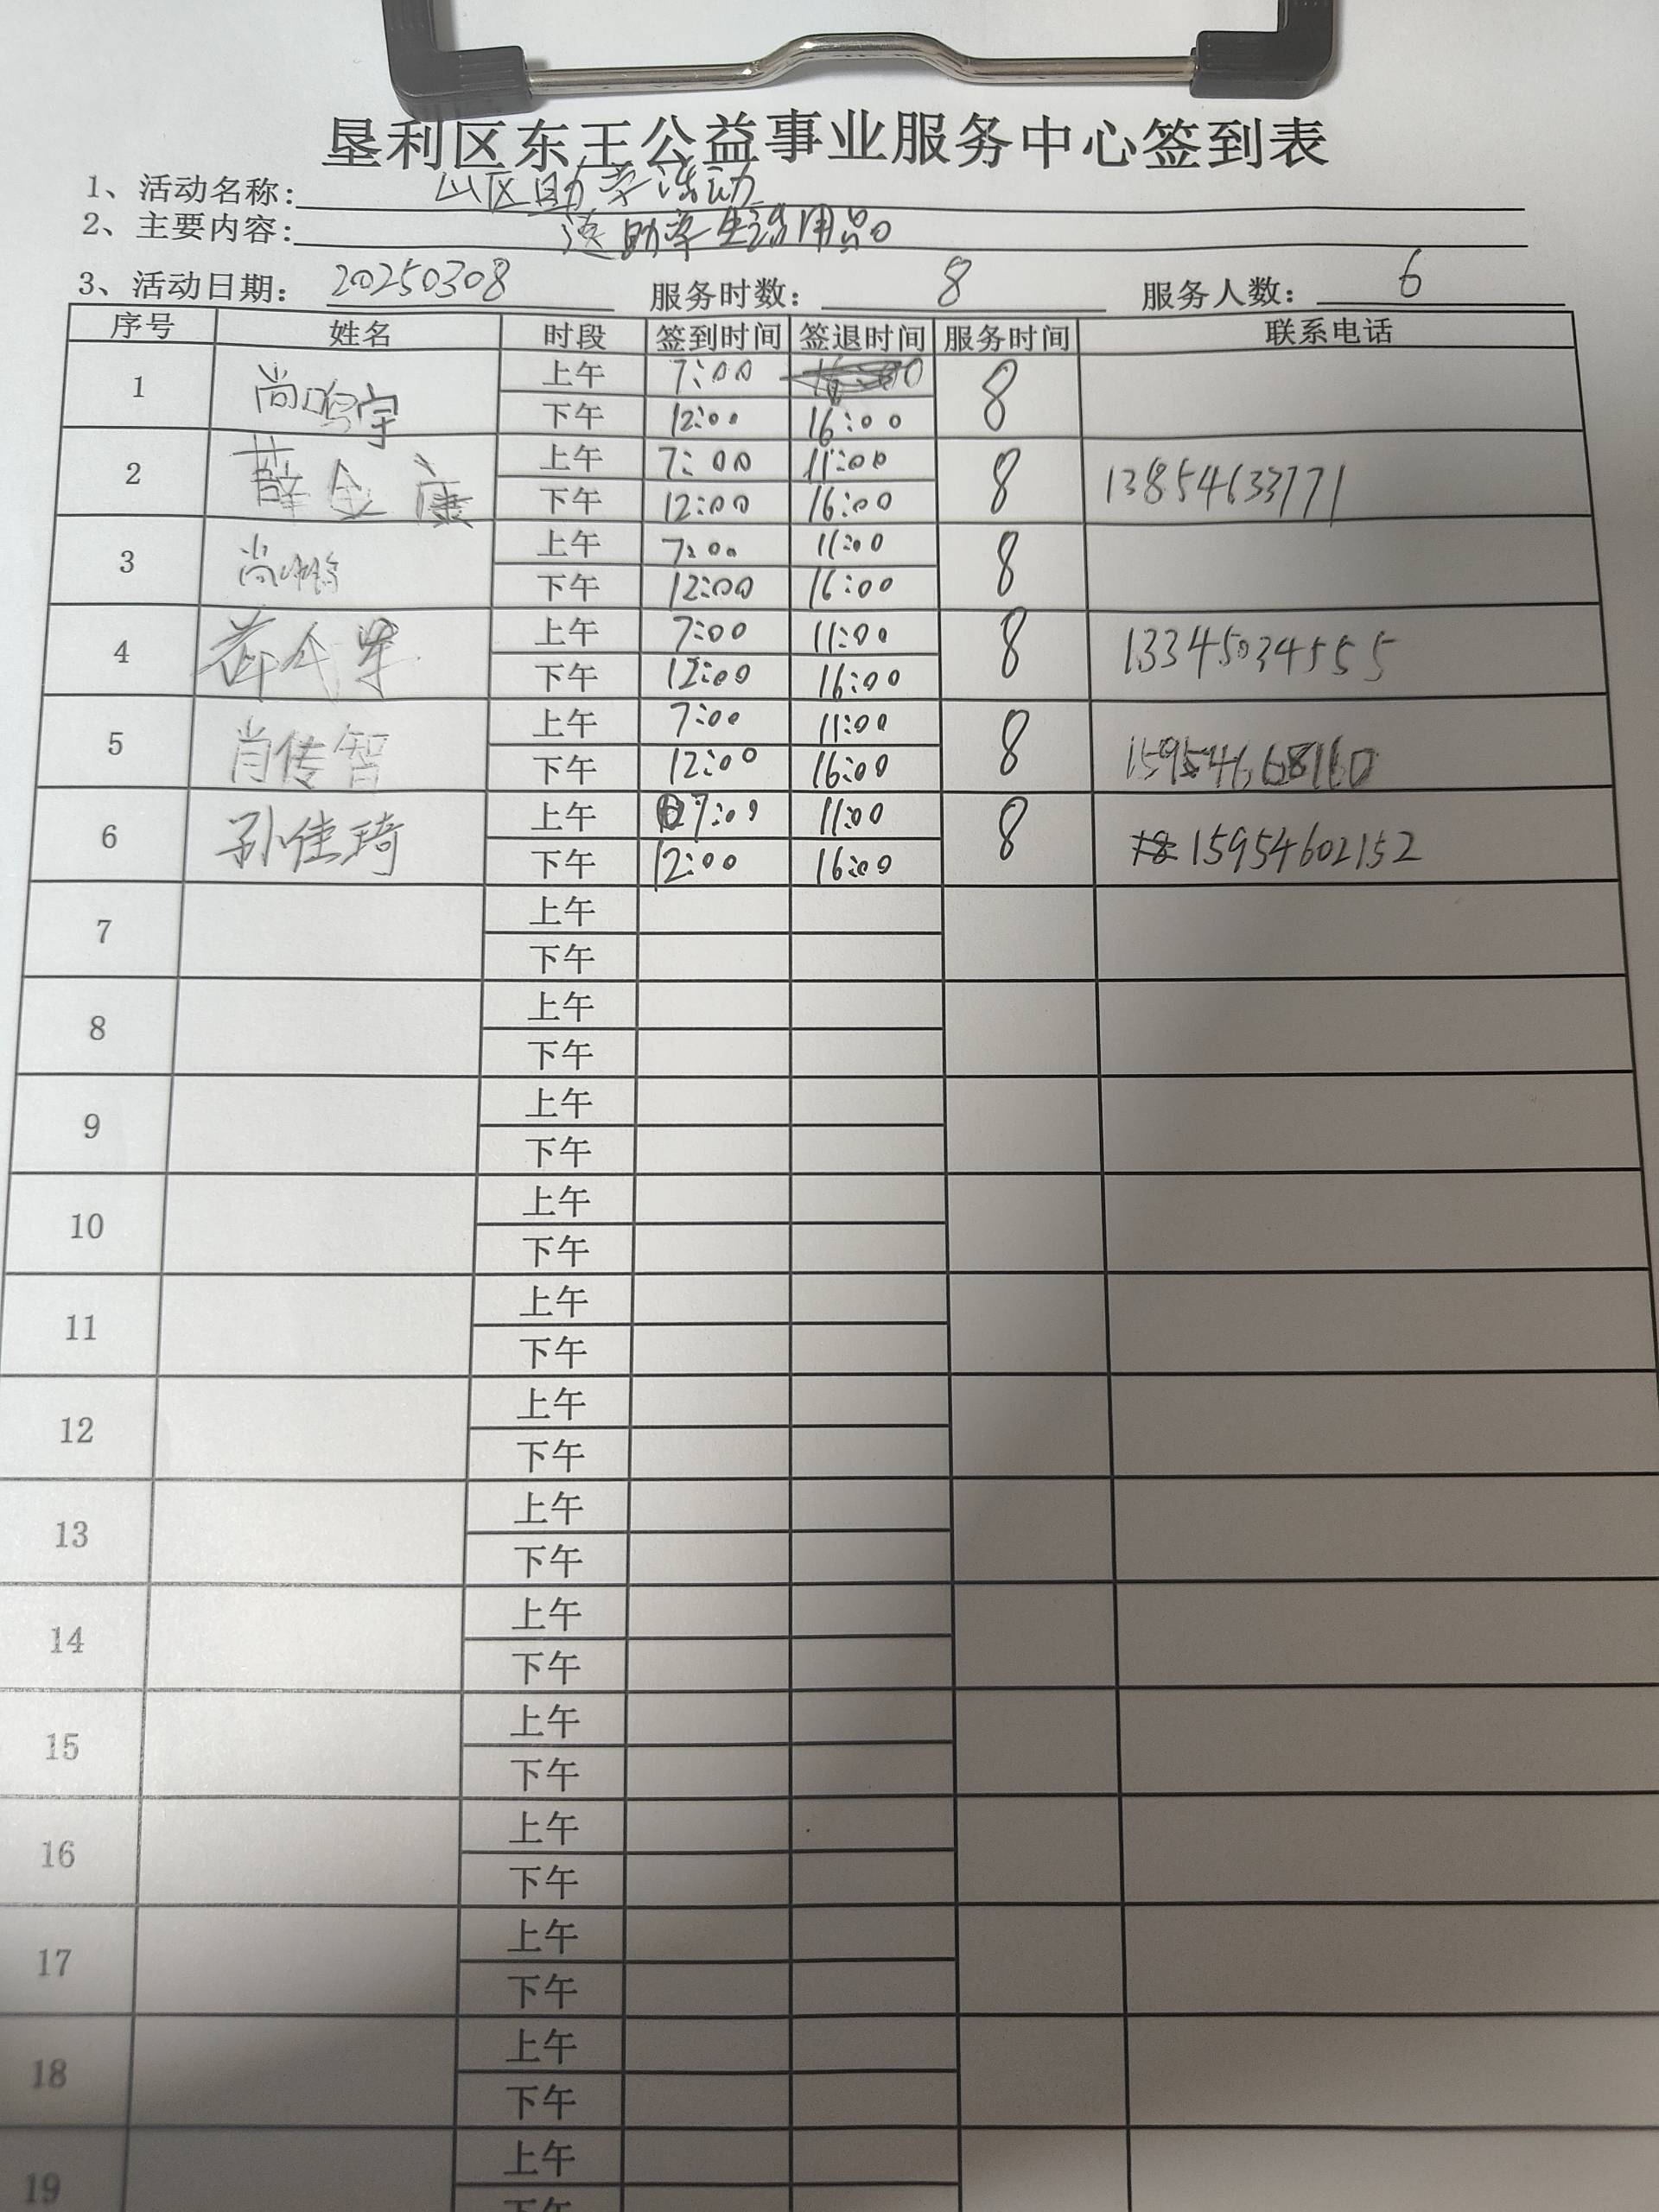 垦利区东王公益事业服务中心签到表
1、活动名称: 山区助学活动
2、主要内容: 送助学生活用品
3、活动日期: 20250308 服务时数: 8 服务人数: 6
序号 姓名 时段 签到时间 签退时间 服务时间 联系电话
1 尚鸣宇 上午 7:00 8
下午 12:00 16:00
2 薛金康 上午 7:00 11:00 8 13854633771
下午 12:00 16:00
3 尚 上午 7:00 11:00 8
下午 12:00 16:00
4 上午 7:00 11:00 8 13345034555
下午 12:00 16:00
5 肖传智 上午 7:00 11:00 8 15954668160
下午 12:00 16:00
6 孙佳琦 上午 7:00 11:00 8 15954602152
下午 12:00 16:00
7 上午
下午
8 上午
下午
9 上午
下午
10 上午
下午
11 上午
下午
12 上午
下午
13 上午
下午
14 上午
下午
15 上午
下午
16 上午
下午
17 上午
下午
18 上午
下午
19 上午
下午